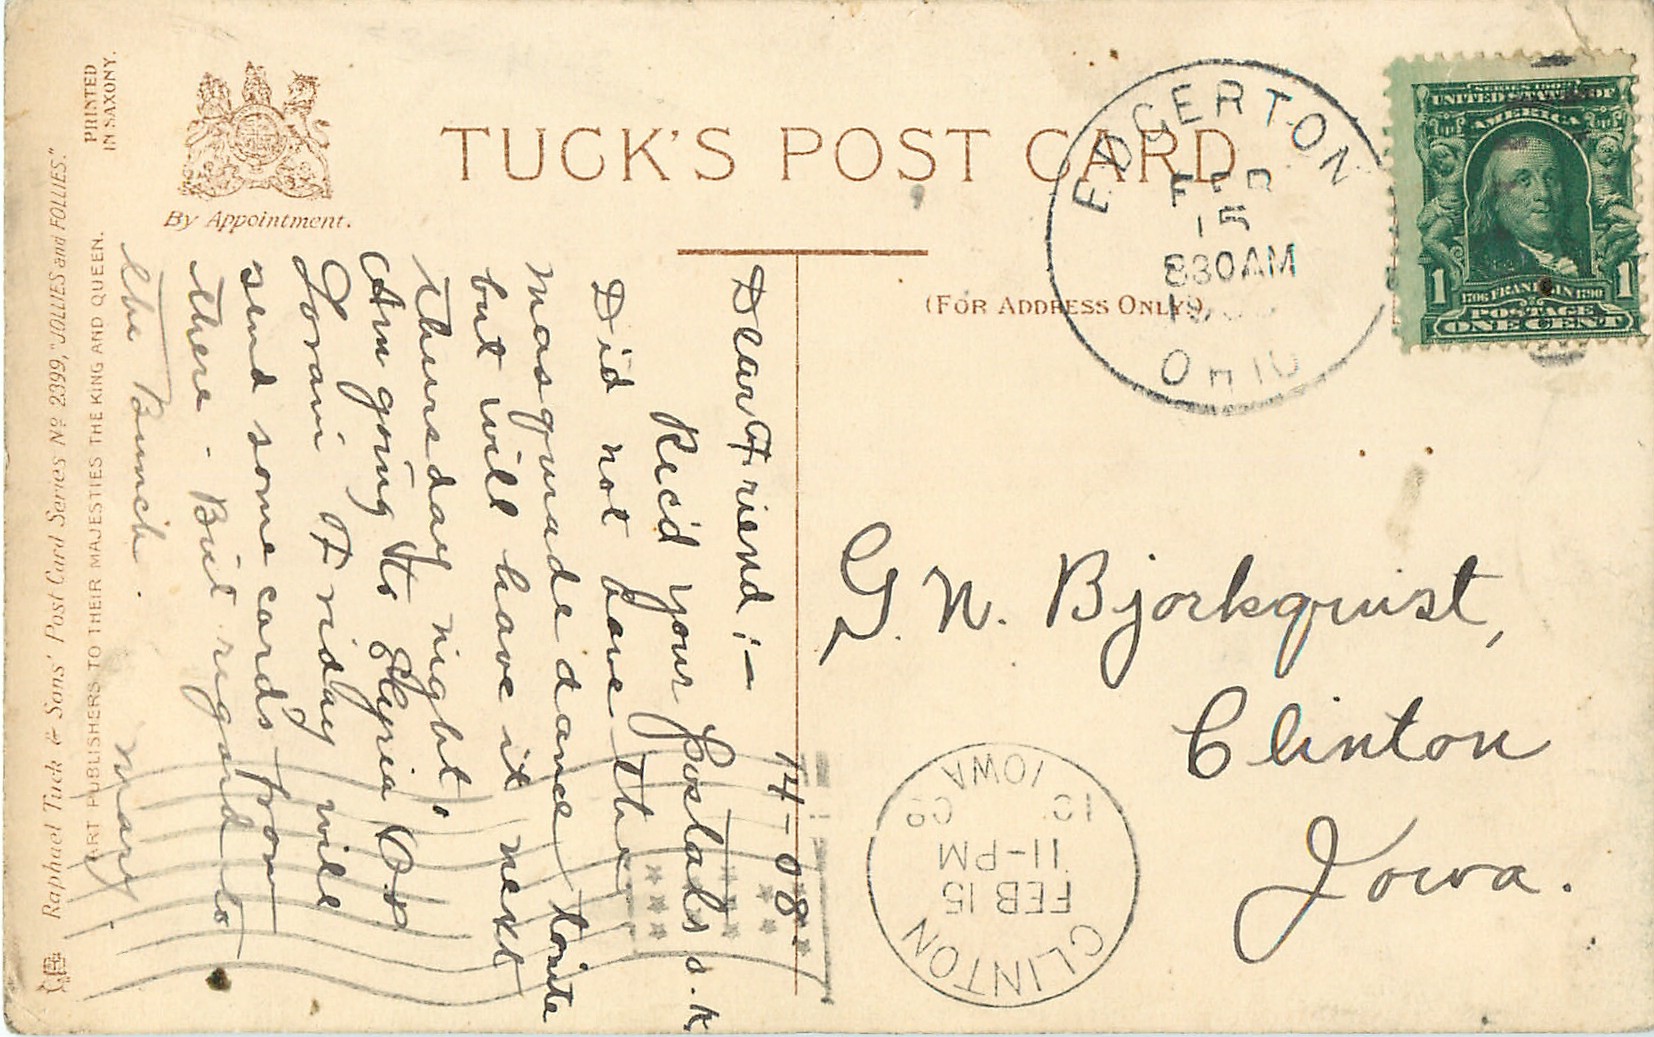 TUCK'S POST CARD
By Appointment.
(FOR ADDRESS ONLY).
PRINTED
IN SAXONY.
Raphael Tuck & Sons' Post Card Series Nº 2399, "JOLLIES and FOLLIES."
ART PUBLISHERS TO THEIR MAJESTIES THE KING AND QUEEN.
EDGERTON
FEB
15
830AM
OHIO
SERIES 1902
UNITED STATES OF
AMERICA
1 1
1706 FRANKLIN 1790
POSTAGE
ONE CENT
14-08
Dear Friend:-
Rec'd your postals o.k
Did not have the
masquerade dance tonite
but will have it next
Thursday night.
Am going to Elyria Or
Lorain Friday will
send some cards from
there - But regard to
the Bunch.
Mary.
G. N. Bjorkquist,
Clinton
Iowa.
CLINTON
FEB 15
11-PM
IOWA